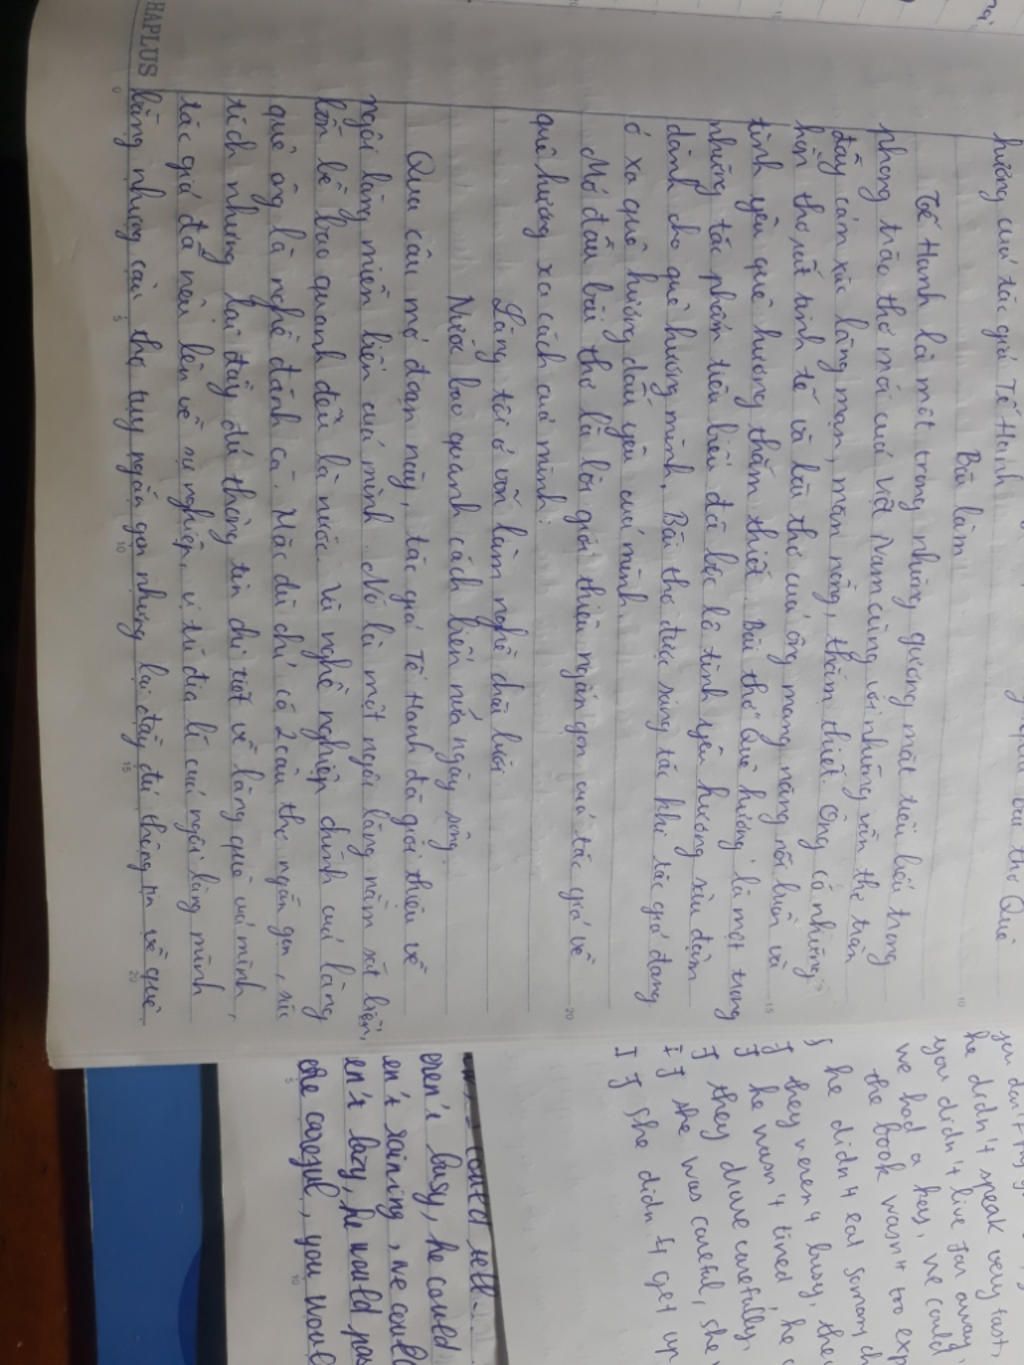 hương cuả tác giả Tế Hanh
Bài làm
Tế Hanh là một trong những gương mặt tiêu biểu trong
phong trào thơ mới cuả Việt Nam cùng với những vần thơ tràn
đầy cảm xúc lãng mạn, mặn nồng, thắm thiết. Ông có những
hồn thơ rất tinh tế và lời thơ cuả ông mang nặng nỗi buồn và
tình yêu quê hương thắm thiết. Bài thơ Quê hương là một trong
những tác phẩm tiêu biểu đã bộc lộ tình yêu hương sâu đậm
dành cho quê hương mình. Bài thơ được sáng tác khi tác giả đang
ở xa quê hương dấu yêu cuả mình.
Mở đầu bài thơ là lời giới thiệu ngắn gọn cuả tác giả về
quê hương xa cách cuả mình:
Làng tôi ở vốn làm nghề chài lưới
Nước bao quanh cách biển nửa ngày sông.
Qua câu mở đoạn này, tác giả Tế Hanh đã giới thiệu về
ngôi làng miền biển cuả mình. Nó là một ngôi làng nằm sát biển,
bốn bề bao quanh đều là nước. Và nghề nghiệp chính cuả làng
quê ông là nghề đánh cá. Mặc dù chỉ có 2 câu thơ ngắn gọn, súc
tích nhưng lại đầy đủ thông tin chi tiết về làng quê cuả mình,
tác giả đã nêu lên về sự nghiệp, vị trí địa lí cuả ngôi làng mình
bằng những câu thơ tuy ngắn gọn nhưng lại đầy đủ thông tin về quê
HAPLUS
0 5 10 15 20
he didn't speak very fast,
you didn't live far away
we had a key, we could
the book wasn't too exp
he didn't eat so many ch
they weren't busy, they
he wasn't tired, he
If they drove carefully,
If she was careful, she
If she didn't get up
eren't busy, he could
en't raining, we could
en't lazy, he would pas
ore careful, you woul